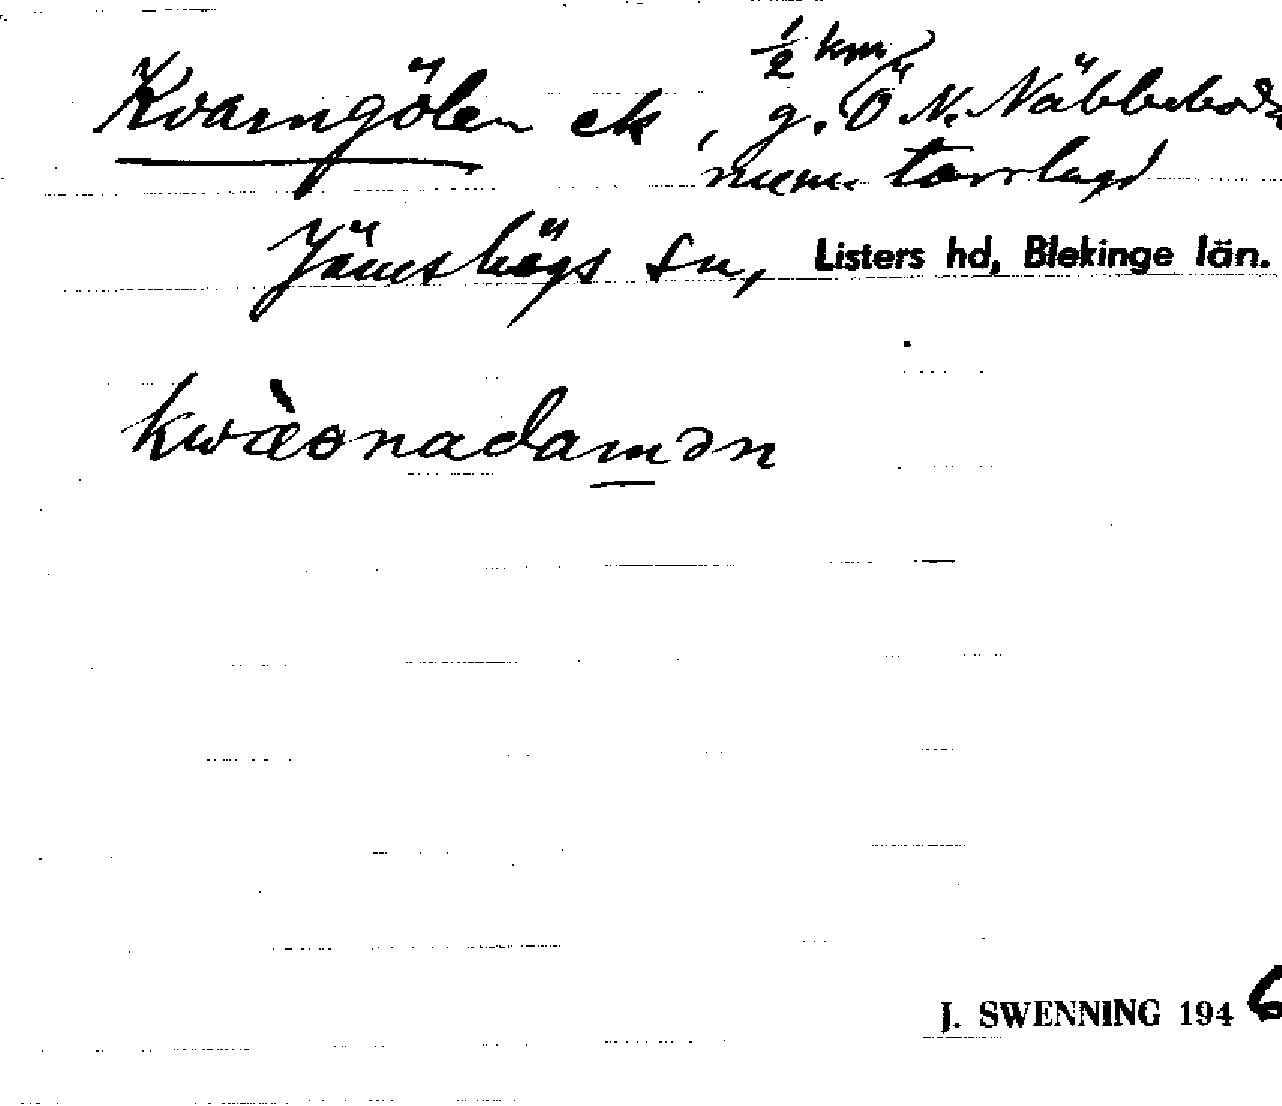 Kvarngölen ek, 1/2 km g. Ö N. Näbbeboda
numn. torrlagd
Jämshögs sn, Listers hd, Blekinge län.
kwæ̀ɵnadamən
J. SWENNING 1946